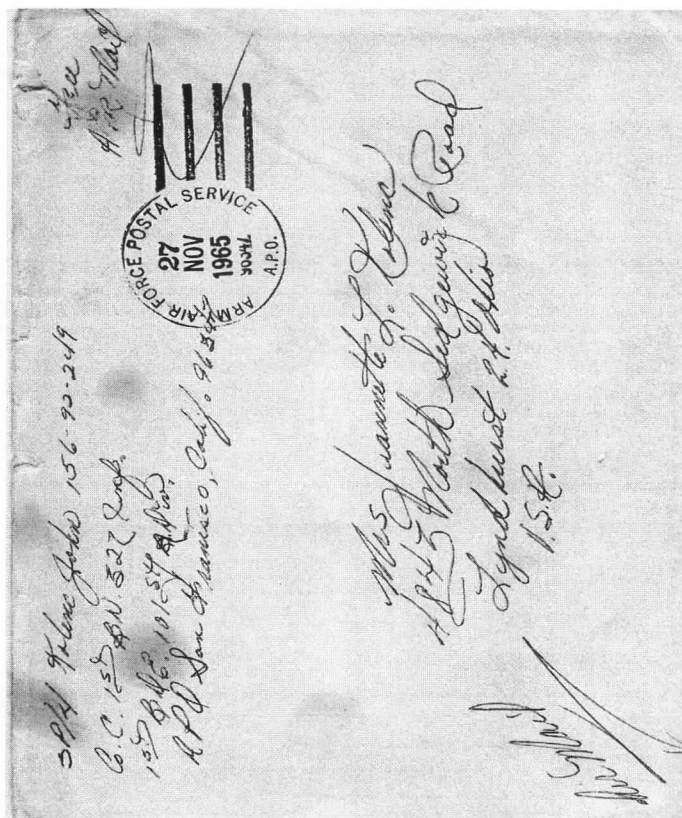 SP/4 Kolenc John 156-92-2419
Co. C. 1st BN. 327 Inf.
1st Bde. 101st A. Div.
A P O San Francisco, Calif. 96347
Free
Air Mail
ARMY AIR FORCE POSTAL SERVICE
27
NOV
1965
A.P.O.
Mrs Jeannette L. Kolenc
4843 North Sedgewick Road
Lyndhurst 24 Ohio
U.S.A.
Air Mail